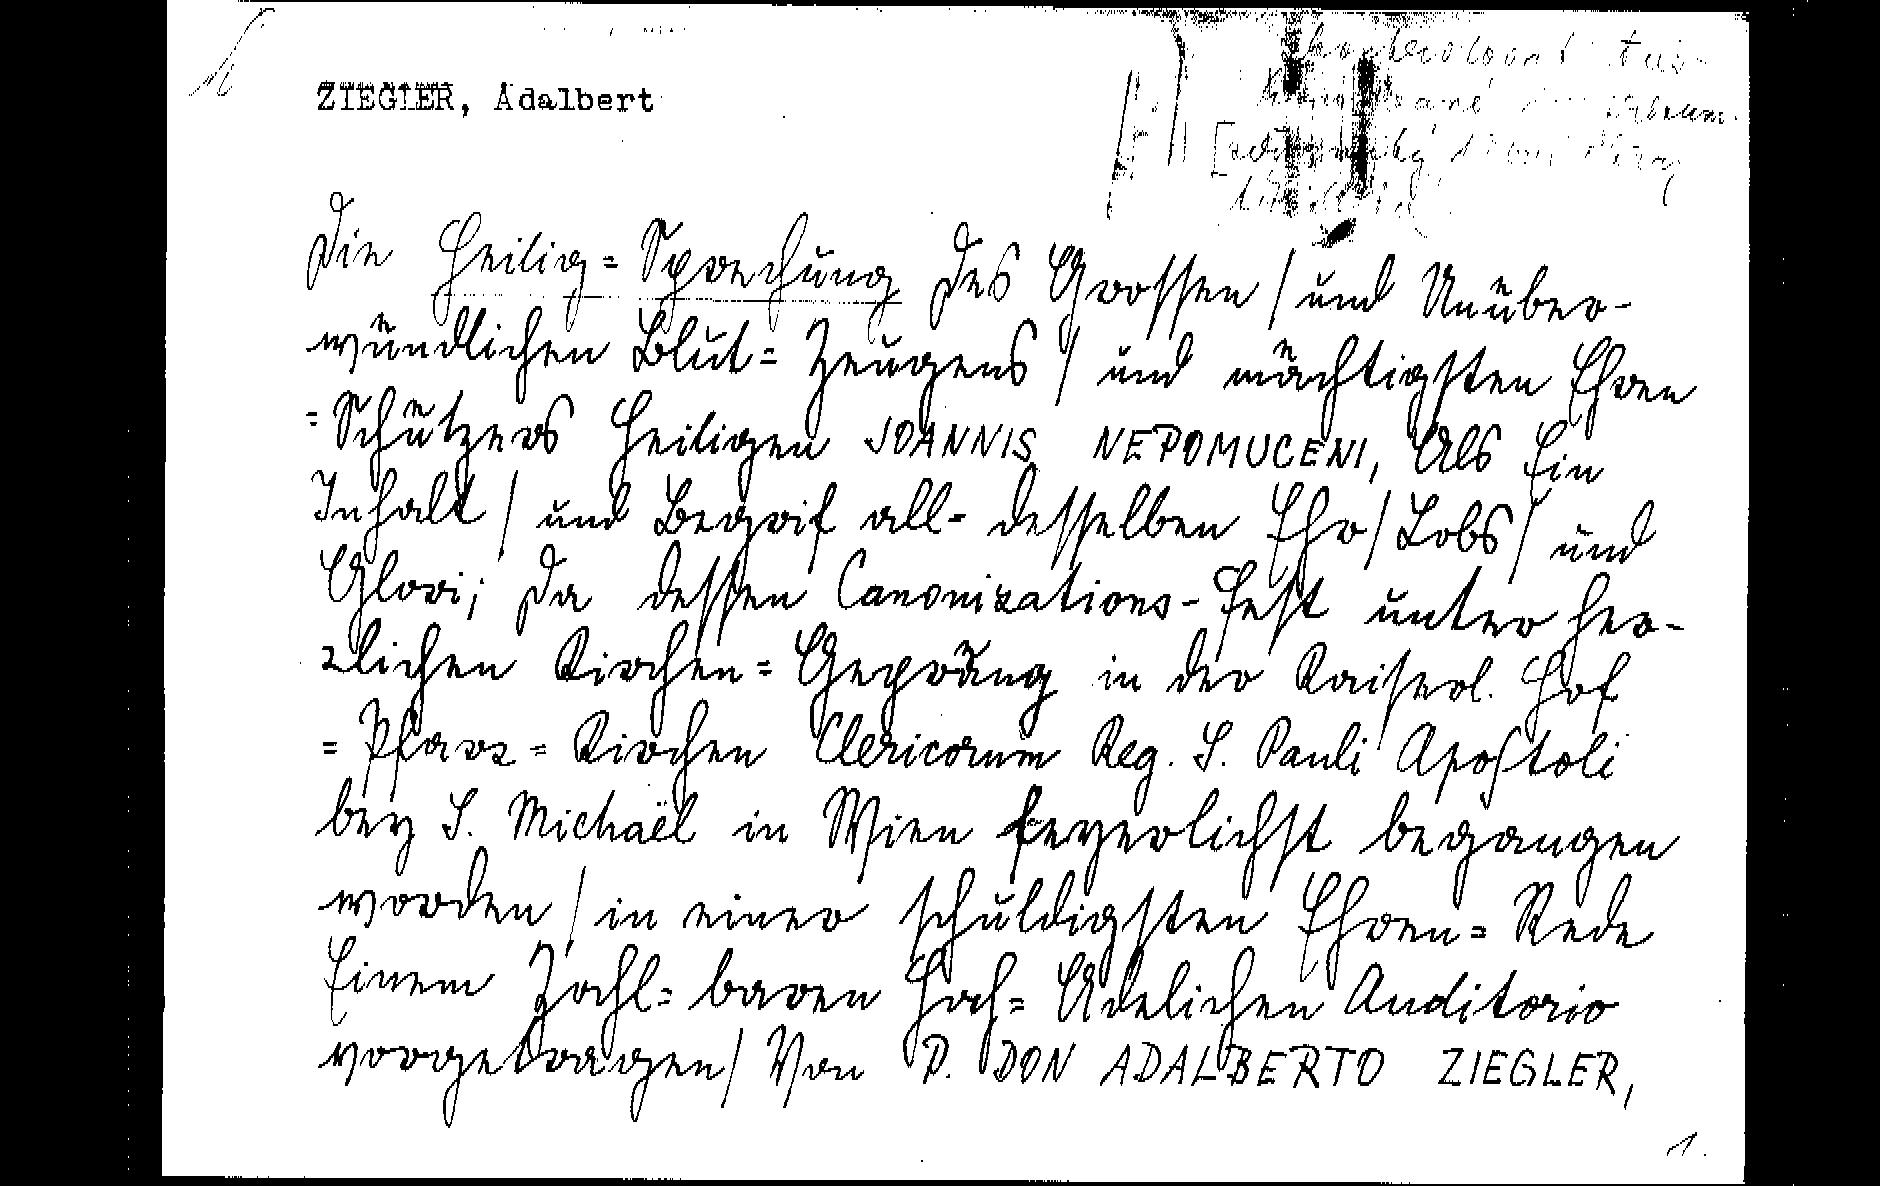 ZIEGLER, Adalbert
Die Heilig=Sprechung des Grossen / und Unüber-
wündlichen Blut=Zeugens / und mächtigsten Ehren
=Schützers Heiligen JOANNIS NEPOMUCENI, Als Ein
Inhalt / und Begrif all-desselben Ehr / Lobs / und
Glori; Da dessen Canonizations-Fest unter her-
zlichen Kirchen=Gepräng in der Kaiserl. Hof
=Pfarr=Kirchen Clericorum Reg. S. Pauli Apostoli
bey S. Michaël in Wien feyerlichst begangen
worden / in einer schuldigsten Ehren=Rede
Einem Zahl=baren Hoch=Adelichen Auditorio
vorgetragen / Von P. DON ADALBERTO ZIEGLER,
1.